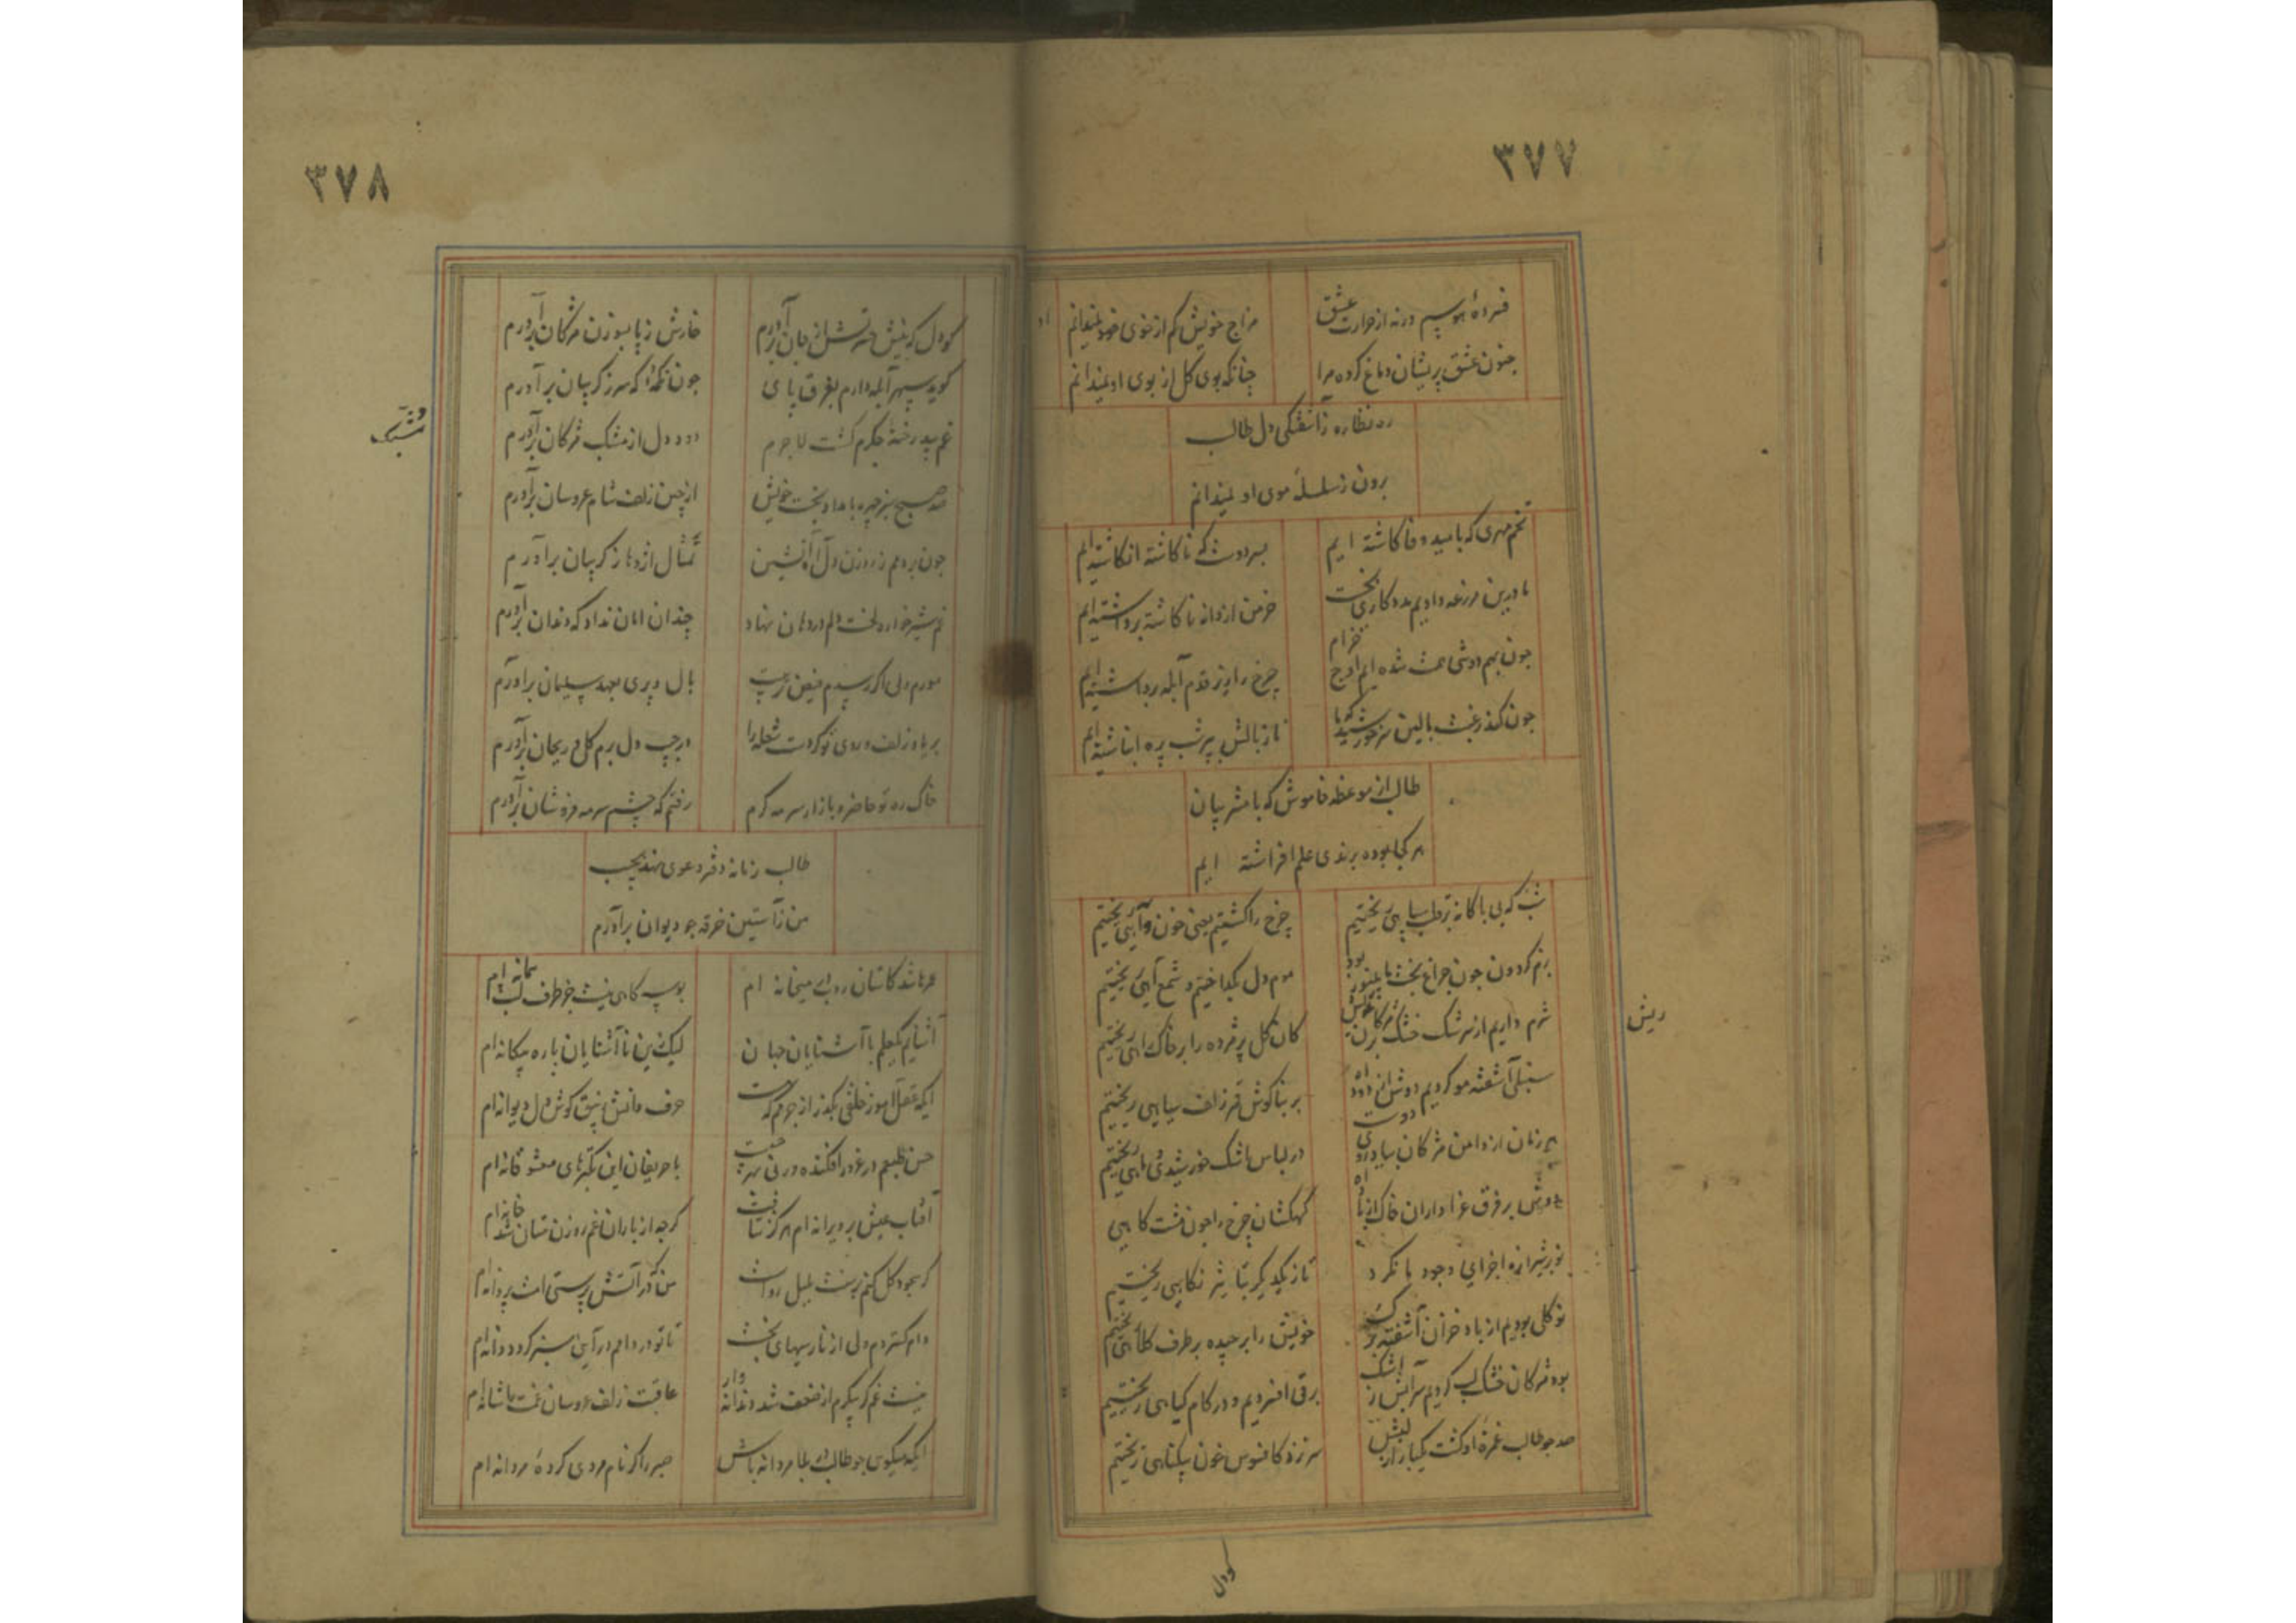 ۳۷۷
فسرده هوسیم ورنه از حرارت عشق
مزاج خویش کم از خوی خود نمیدانم
جنون عشق پریشان دماغ کرده مرا
چنانکه بوی کل از بوی او نمیدانم
ره نظاره ز آشفتکی دل طالب
برون ز سلسلهٔ موی او نمیدانم
تخم مهری که بامید وفا کاشته ایم
ناکاشته انکاشته ایم
ما درین مزرعه دادیم مدد کاری بخت
خرمن از دانه ناکاشته برداشته ایم
چون بهم دوشی شده ایم اوج خرام
چرخ را زیر قدم آبله برداشته ایم
چون کند رغبت بالین سر خورشید که ما
ناز بالش بپر شب پره انباشته ایم
طالب از موعظه خاموش که با مشربیان
هر کجا بوده برندی علم افراشته ایم
شب که بی باکانه
چرخ را کشتیم یعنی خون ریختیم
بزم کردون چون چراغ بخت ما بی نور بود
موم دل بکداختیم و شمع آهی ریختیم
شرم داریم از سرشک خشک مژکان
کان کل پژمرده را بر خاک راهی ریختیم
سنبلی آشفته مو کردیم دوش از دود آه
بر بناکوش قمر زلف سیاهی ریختیم
هر زمان از دامن مژکان بیاد روی دوست
در لباس اشک خورشیدی و ماهی ریختیم
دوش بر فرق عزاداران خاک
کهکشان چرخ را چون مشت کاهی
شیرازه اجزای وجود ما نکرد
تا ز یکدیکر بتاثیر نکاهی ریختیم
نو کلی بودیم از باد خزان آشفته
خویش را برچیده بر طرف کلاهی ریختیم
بود مژکان خشک لب کردیم سرابش ز اشک
برقی افسردیم و در کام کیاهی ریختیم
صد چو طالب غمزهٔ او کشت یکبار از لبش
سر نزد کافسوس خون بیکناهی ریختیم
ریش
کو دل
۳۷۸
کو دل که
خارش ز پا بسوزن مژکان برآورم
کو ید سپهر آبله دارم بفرق پای
چون تکمهٔ که سر ز کریبان برآورم
رخنهٔ جکرم کشت لاجرم
دود دل از مشبک مژکان برآورم
صد صبح سبز چهره بامداد بخت خویش
از چین زلف شام عروسان برآورم
چون بردمم ز روزن دل آه آتشین
تمثال اژدها ز کریبان برآورم
غم شیر خواره لخت دلم در دهان نهاد
چندان امان نداد که دندان برآورم
مورم ولی اکر رسدم فیض تربیت
بال و پری بعهد سلیمان برآورم
بر یاد زلف و روی تو کردست شعله را
در جیب دل برم کل و ریحان برآورم
خاک ره تو حاضر و بازار سرمه کرم
رفتم که چشم سرمه فروشان برآورم
طالب زمانه دفتر دعوی
من ز آستین خرقه جو دیوان برآورم
مشبک
عمرها شد کاستان روب میخانه ام
بوسه کاهی نیست جز طرف لب پیمانه ام
آشنایم بکعلم با آشنایان جهان
لیک زین ناآشنایان پاره بیکانه ام
ایکه عقل آموز خلقی بکذر از جرمم که نیست
حرف دانش کوش دل دیوانه ام
حسن طبعم در غرور افکنده ورنی بهر چیست
با حریفان این تکبرهای معشوقانه ام
آفتاب عیش بر ویرانه ام هرکز نتافت
کرچه از باران غم روزن نشان شد خانه ام
کر بمود کل کنم پرست بلبل رواست
من که در آتش پرستی امت پروانه ام
دام کستردم ولی از نارسیهای بخت
تا تو در دام در آیی سبز کردد دانه ام
نیست غم کر پیکرم از ضعف شد دندانه وار
عاقبت زلف عروسان شانه ام
ایکه میکویی جو طالب بر بلا مردانه باش
صبر را کر نام مردی کردهٔ مردانه ام